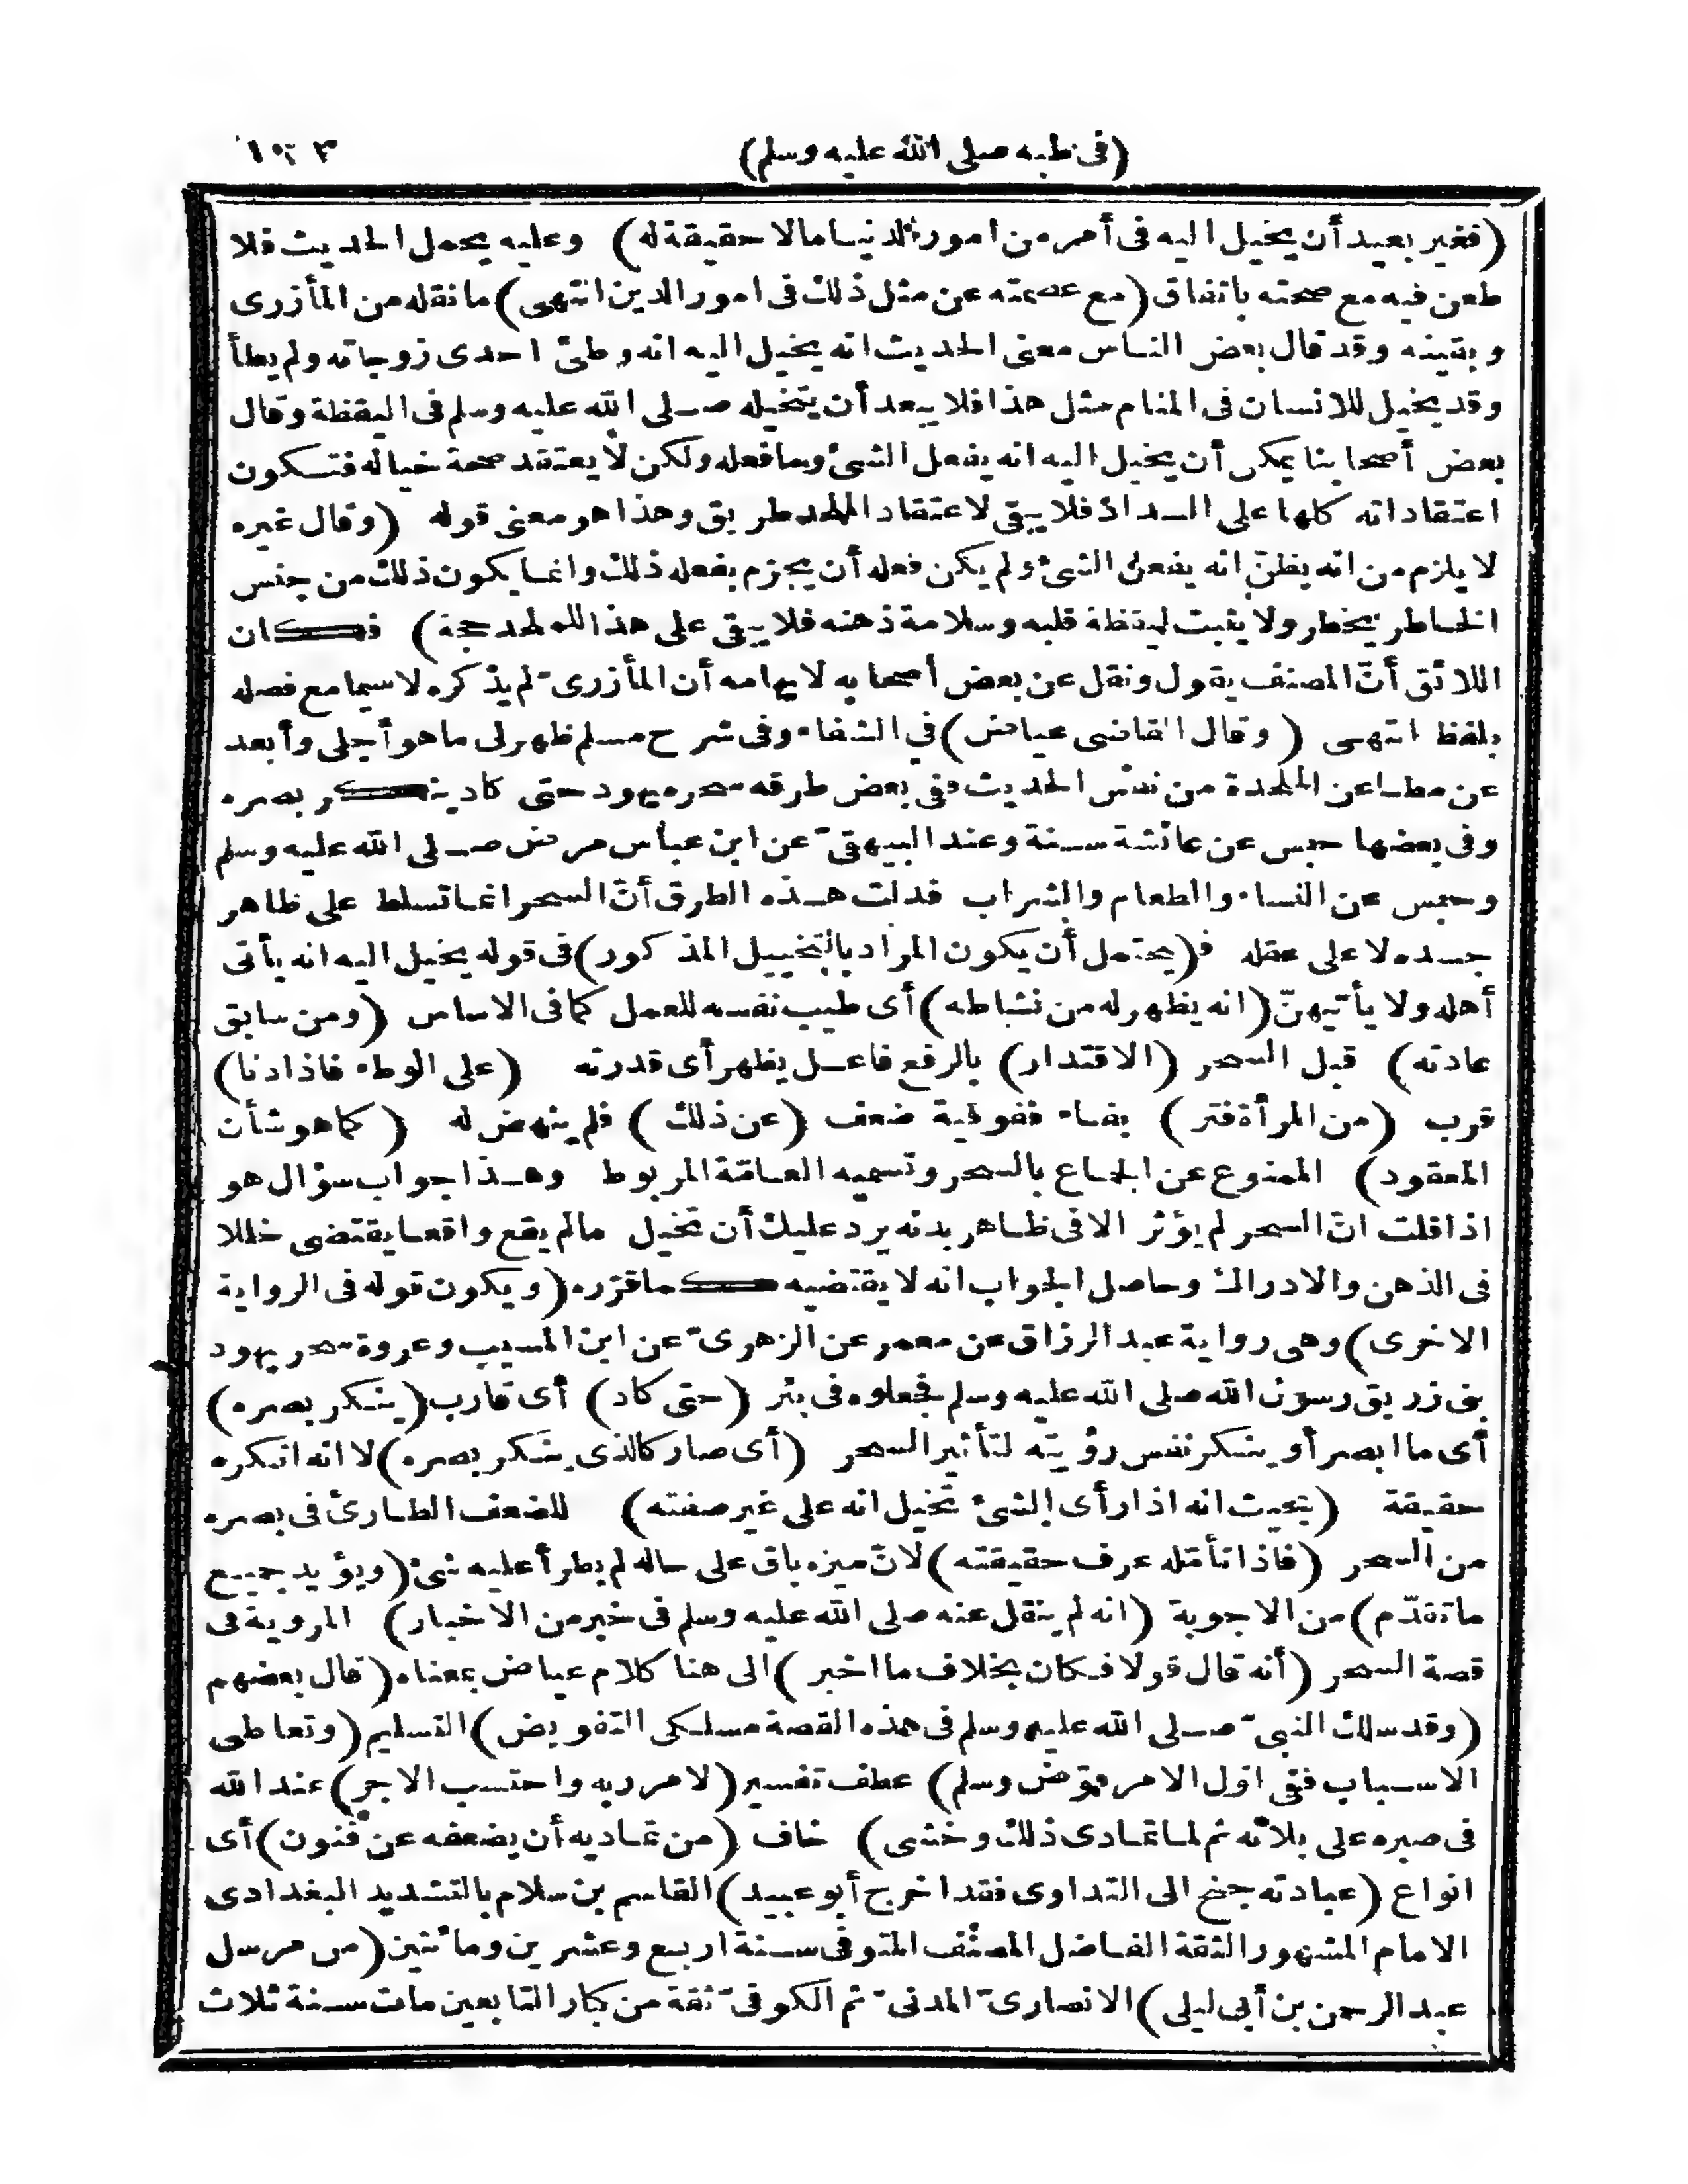 (فى طبه صلى الله عليه وسلم)
(فغير بعيد أن يخيل اليه فى أمر من امور الدنيا ما لا حقيقة له) وعليه يحمل الحديث فلا
طعن فيه مع صحته باتفاق (مع عصمته عن مثل ذلك فى امور الدين انتهى) ما نقله من المأزرى
وبقيته وقد قال بعض الناس معنى الحديث انه يخيل اليه انه وطئ احدى زوجاته ولم يطأ
وقد يخيل للانسان فى المنام مثل هذا فلا يبعد أن يتخيله صلى الله عليه وسلم فى اليقظة وقال
بعض أصحابنا يمكن أن يخيل اليه انه يفعل الشئ وما فعله ولكن لا يعتقد صحة خياله فتكون
اعتقاداته كلها على السداد فلا يبقى لاعتقاد الملحد طريق وهذا هو معنى قوله (وقال غيره
لا يلزم من انه يظنّ انه يفعل الشئ ولم يكن فعله أن يجزم بفعله ذلك وانما يكون ذلك من جنس
الخاطر يخطر ولا يثبت ليقظة قلبه وسلامة ذهنه فلا يبقى على هذا للملحد حجة) فكان
اللائق أنّ المصنف يقول ونقل عن بعض أصحابه لايهامه أن المأزرىّ لم يذكره لا سيما مع فصله
بلفظ انتهى (وقال القاضى عياض) في الشفاء وفى شرح مسلم ظهر لى ما هو أجلى وأبعد
عن مطاعن الملحدة من نفس الحديث ففى بعض طرقه سحره يهود حتى كاد ينكر بصره
وفى بعضها حبس عن عائشة سنة وعند البيهقىّ عن ابن عباس مرض صلى الله عليه وسلم
وحبس عن النساء والطعام والشراب فدلت هذه الطرق أنّ السحر انما تسلط على ظاهر
جسده لا على عقله فـ(يحتمل أن يكون المراد بالتخييل المذكور) فى قوله يخيل اليه انه يأتى
أهله ولا يأتيهنّ (انه يظهر له من نشاطه) أى طيب نفسه للعمل كما فى الاساس (ومن سابق
عادته) قبل السحر (الاقتدار) بالرفع فاعل يظهر أى قدرته (على الوطء فاذا دنا)
قرب (من المرأة فتر) بفاء ففوقية ضعف (عن ذلك) فلم ينهض له (كما هو شأن
المعقود) الممنوع عن الجماع بالسحر وتسميه العامّة المربوط وهذا جواب سؤال هو
اذا قلت انّ السحر لم يؤثر الا فى ظاهر بدنه يرد عليك أن تخيل مالم يقع واقعا يقتضى خللا
فى الذهن والادراك وحاصل الجواب انه لا يقتضيه كما قرّره (ويكون قوله فى الرواية
الاخرى) وهى رواية عبد الرزاق عن معمر عن الزهرىّ عن ابن المسيب وعروة سحر يهود
بنى زريق رسول الله صلى الله عليه وسلم فجعلوه فى بئر (حتى كاد) أى قارب (ينكر بصره)
أى ما ابصر أو ينكر نفس رؤيته لتأثير السحر (أى صار كالذى ينكر بصره) لا انه انكره
حقيقة (بحيث انه اذا رأى الشئ تخيل انه على غير صفته) للضعف الطارئ فى بصره
من السحر (فاذا تأمّله عرف حقيقته) لانّ ميزه باق على حاله لم يطرأ عليه شئ (ويؤيد جميع
ما تقدّم) من الاجوبة (انه لم ينقل عنه صلى الله عليه وسلم فى خبر من الاخبار) المروية فى
قصة السحر (أنه قال قولا فكان بخلاف ما اخبر) الى هنا كلام عياض بمعناه (قال بعضهم
(وقد سلك النبىّ صلى الله عليه وسلم فى هذه القصة مسلكى التفويض) التسليم (وتعاطى
الاسباب ففى اوّل الامر فوّض وسلم) عطف تفسير (لامر ربه واحتسب الاجر) عند الله
فى صبره على بلائه ثم لما تمادى ذلك وخشى) خاف (من تماديه أن يضعفه عن فنون) أى
انواع (عبادته جنح الى التداوى فقد اخرج أبو عبيد) القاسم بن سلام بالتشديد البغدادى
الامام المشهور الثقة الفاضل المصنّف المتوفى سنة اربع وعشرين ومائتين (من مرسل
عبد الرحمن بن أبى ليلى) الانصارىّ المدنىّ ثم الكوفىّ ثقة من كبار التابعين مات سنة ثلاث